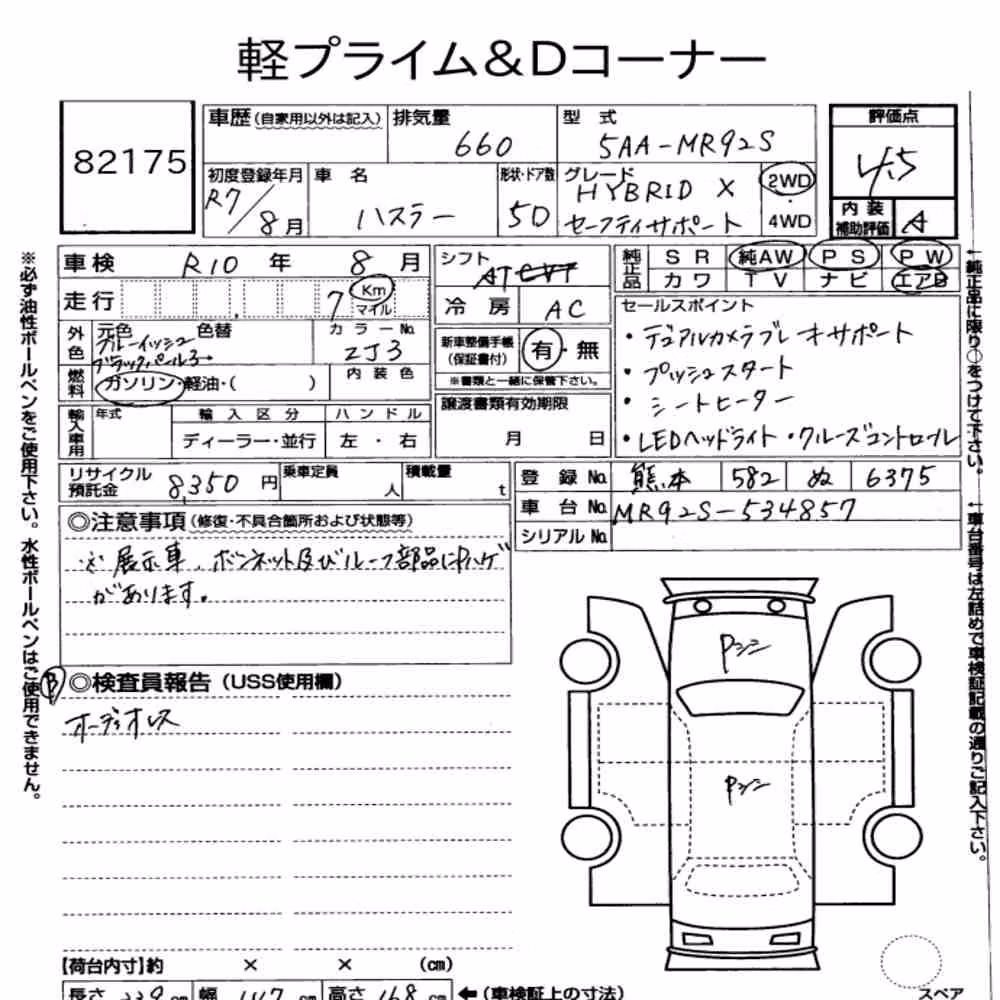 軽プライム＆Dコーナー
82175
車歴(自家用以外は記入)
排気量
660
型式
5AA-MR92S
評価点
4.5
初度登録年月
R7/8月
車名
ハスラー
形状・ドア数
5D
グレード
HYBRID X
セーフティサポート
2WD
4WD
内装
補助評価
A
車検 R10年 8月
走行 7 Km
マイル
シフト
AT
冷房 AC
純正品
SR 純AW PS PW
カワ TV ナビ エアB
外色
元色 色替
ブルーイッシュ
ブラックパール3
カラーNo.
ZJ3
燃料
ガソリン・軽油・( )
内装色
新車整備手帳
(保証書付)
有・無
※書類と一緒に保管下さい。
セールスポイント
・デュアルカメラブレーキサポート
・プッシュスタート
・シートヒーター
・LEDヘッドライト・クルーズコントロール
輸入車用
年式
輸入区分
ハンドル
ディーラー・並行
左・右
譲渡書類有効期限
月 日
リサイクル
預託金
8,350円
乗車定員
人
積載量
t
登録No. 熊本 582 ぬ 6375
車台No. MR92S-534857
シリアルNo.
◎注意事項(修復・不具合箇所および状態等)
※展示車、ボンネット及びルーフ部品に中ハゲ
があります。
B
◎検査員報告(USS使用欄)
オーディオレス
Pシミ
Pシミ
【荷台内寸】約 × × (cm)
長さ 339cm
幅 147cm
高さ 168cm
←(車検証上の寸法)
スペア
※必ず油性ボールペンをご使用下さい。水性ボールペンはご使用できません。
←純正品に限り○をつけて下さい。
←車台番号は左詰めで車検証記載の通りご記入下さい。